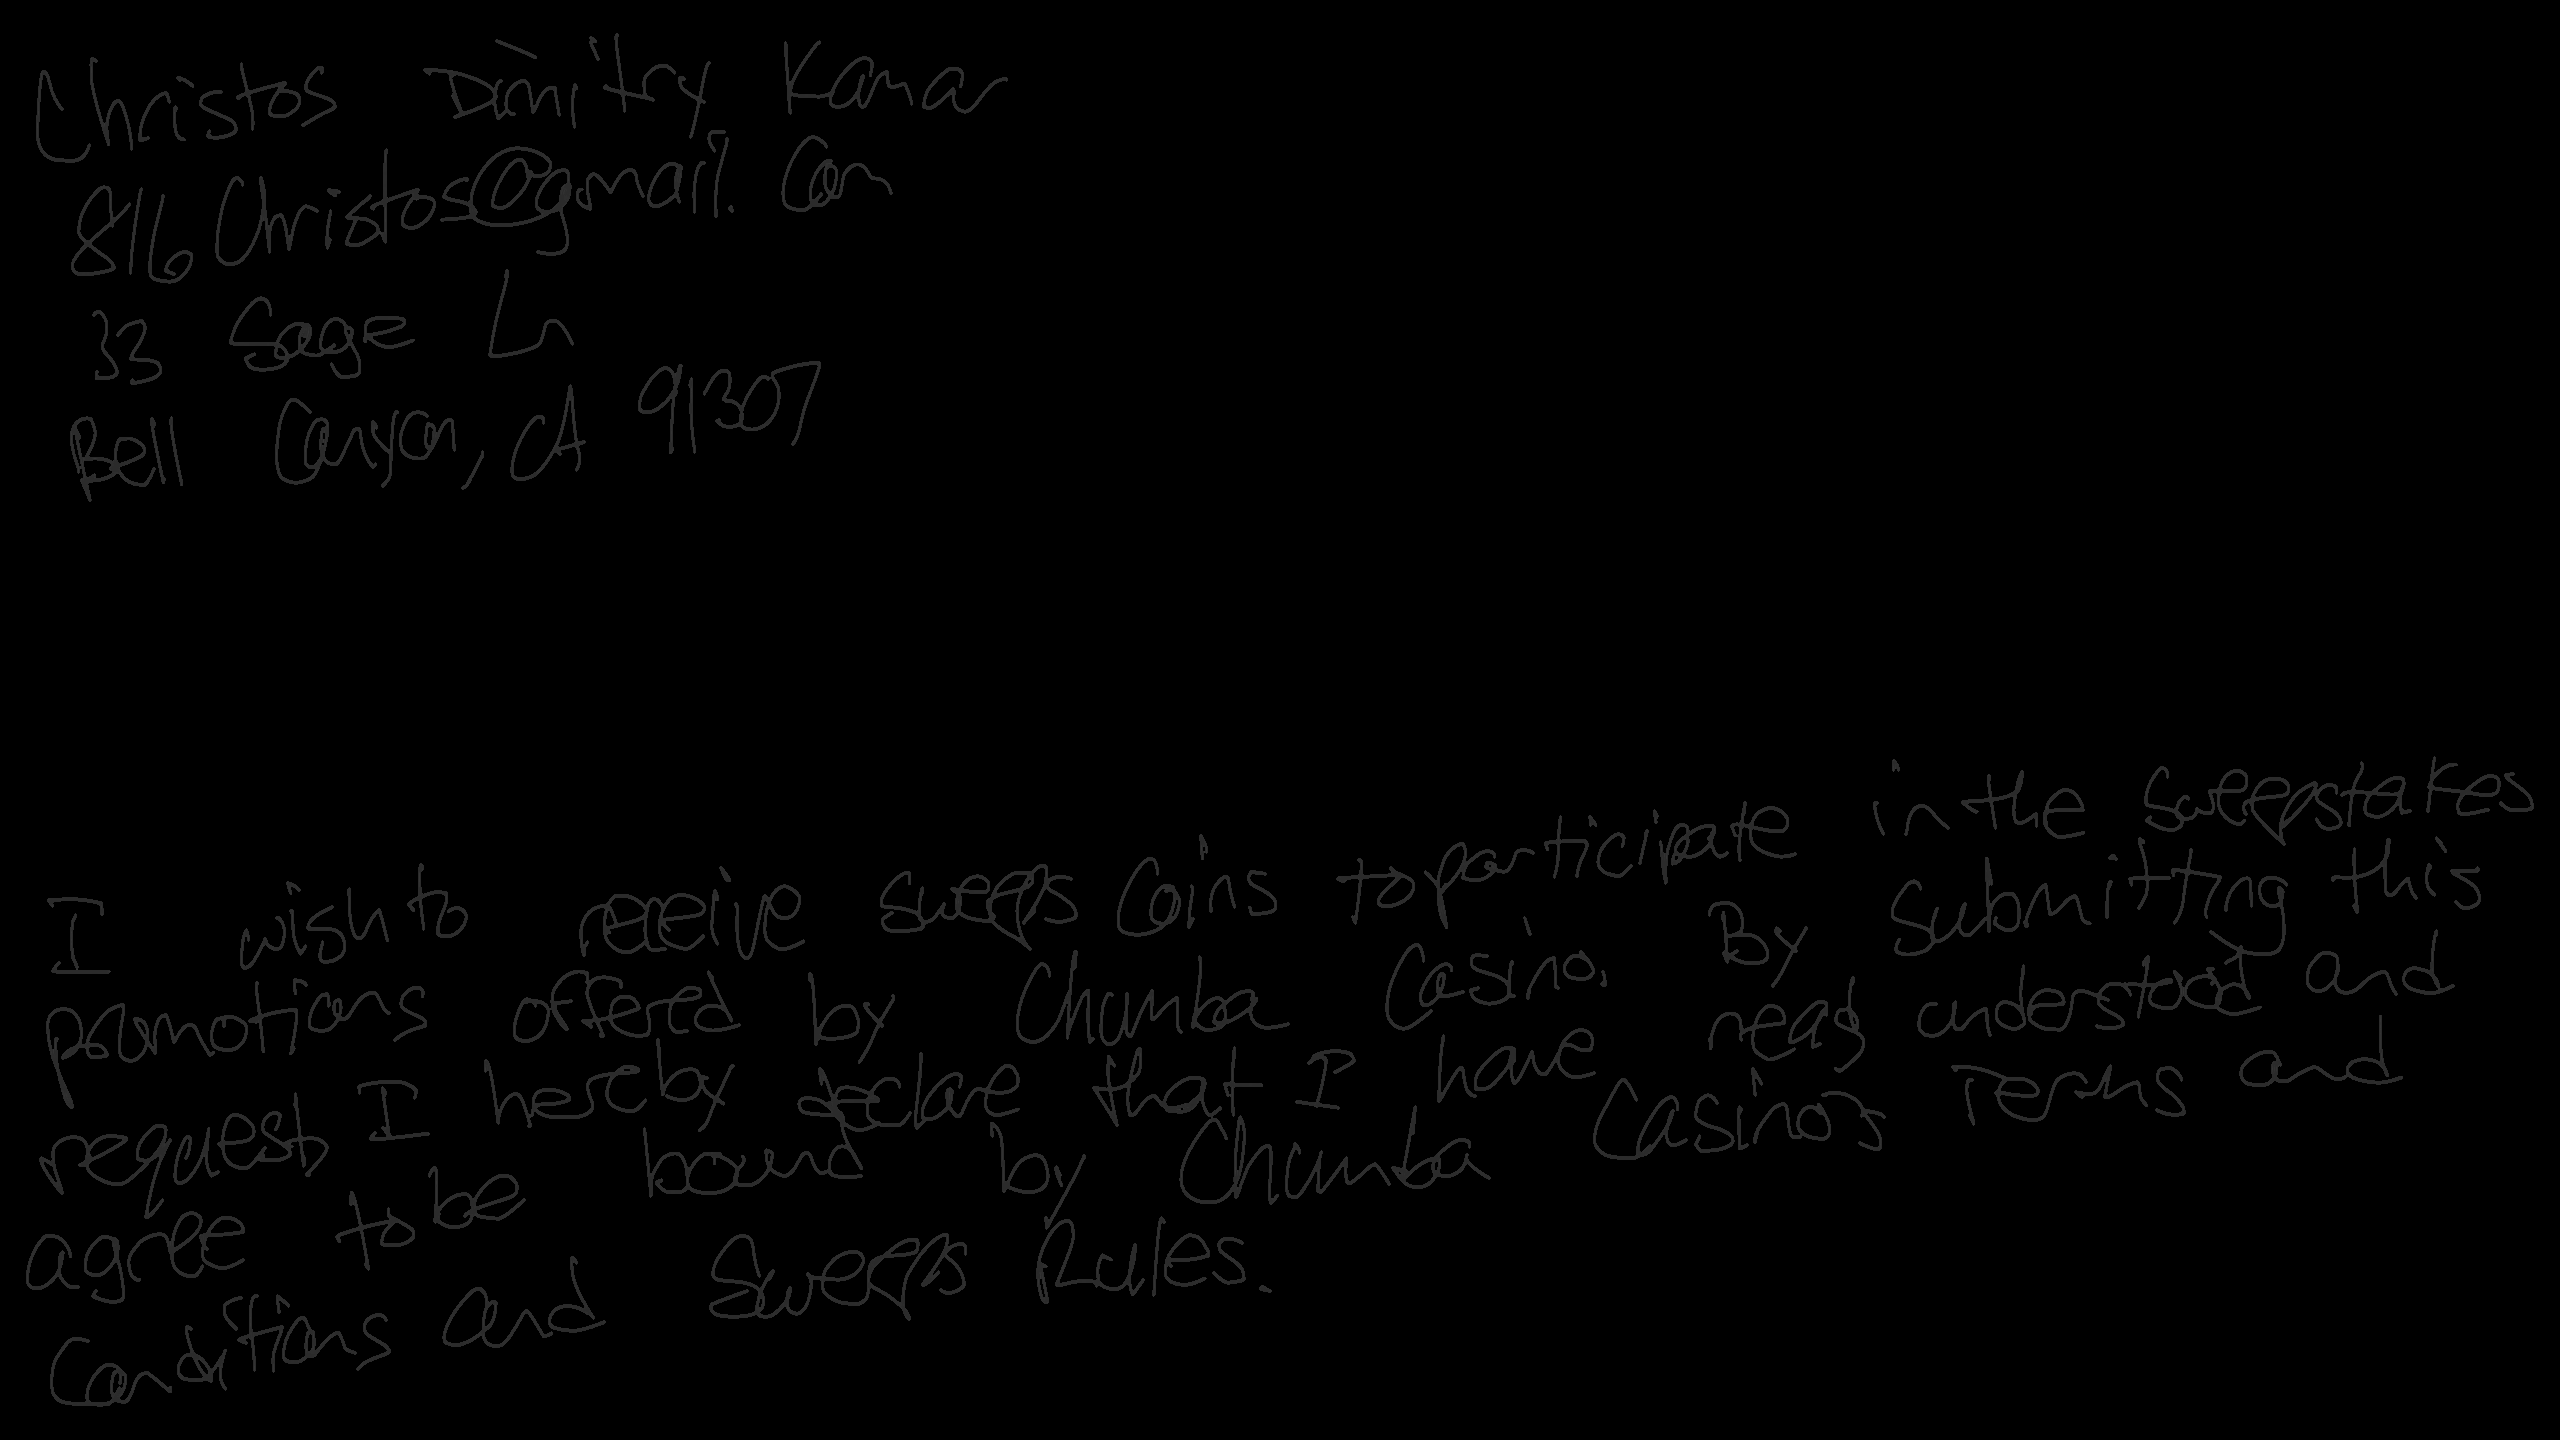 Christos Dimitry Kamar
816Christos@gmail.com
33 Sage Ln
Bell Canyon, CA 91307
I wish to receive sweeps Coins to participate in the sweepstakes
promotions offered by Chumba Casino. By submitting this
request, I hereby declare that I have read, understood and
agree to be bound by Chumba Casino's Terms and
Conditions and Sweeps Rules.